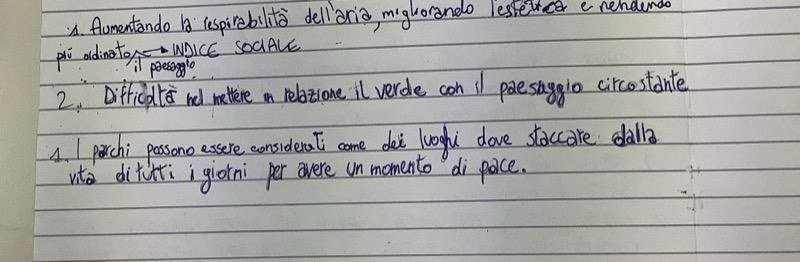 1. Aumentando la respirabilità dell'aria, migliorando l'estetica e rendendo
più ordinato → INDICE SOCIALE
il paesaggio
2. Difficoltà nel mettere in relazione il verde con il paesaggio circostante
1. I parchi possono essere considerati come dei luoghi dove staccare dalla
vita di tutti i giorni per avere un momento di pace.